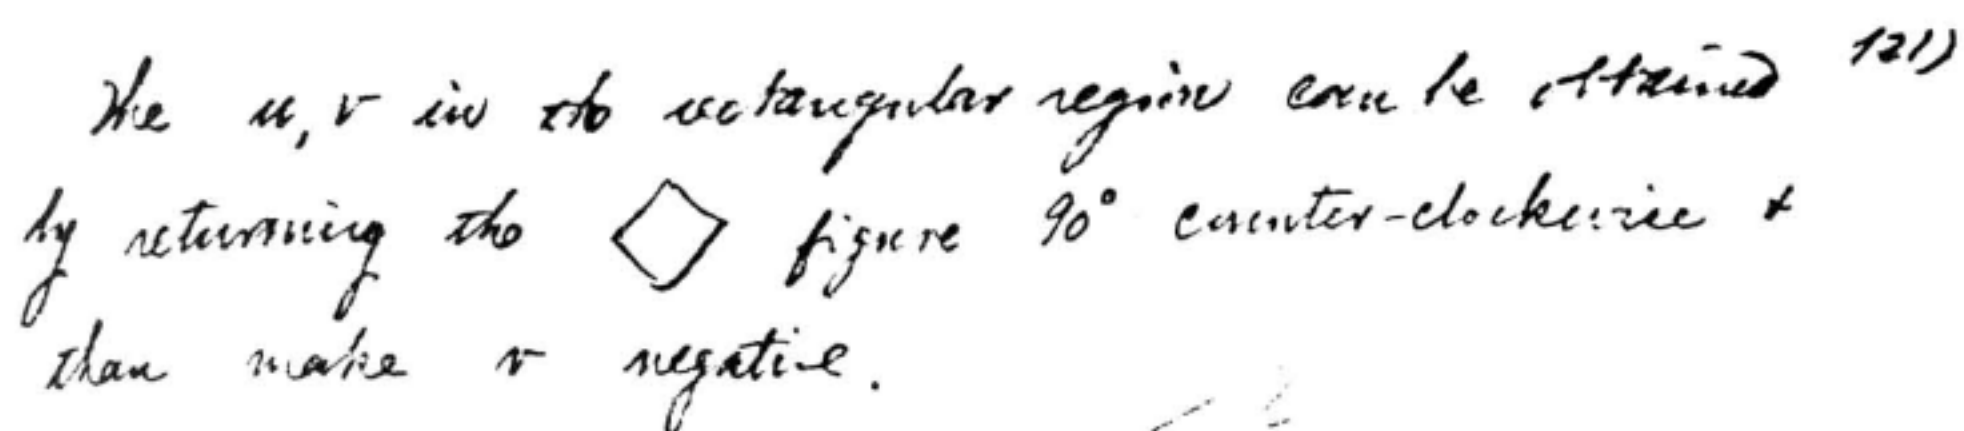 The u, v in the rectangular region can be obtained 121)
by returning the ◇ figure 90° counter-clockwise +
than make v negative.